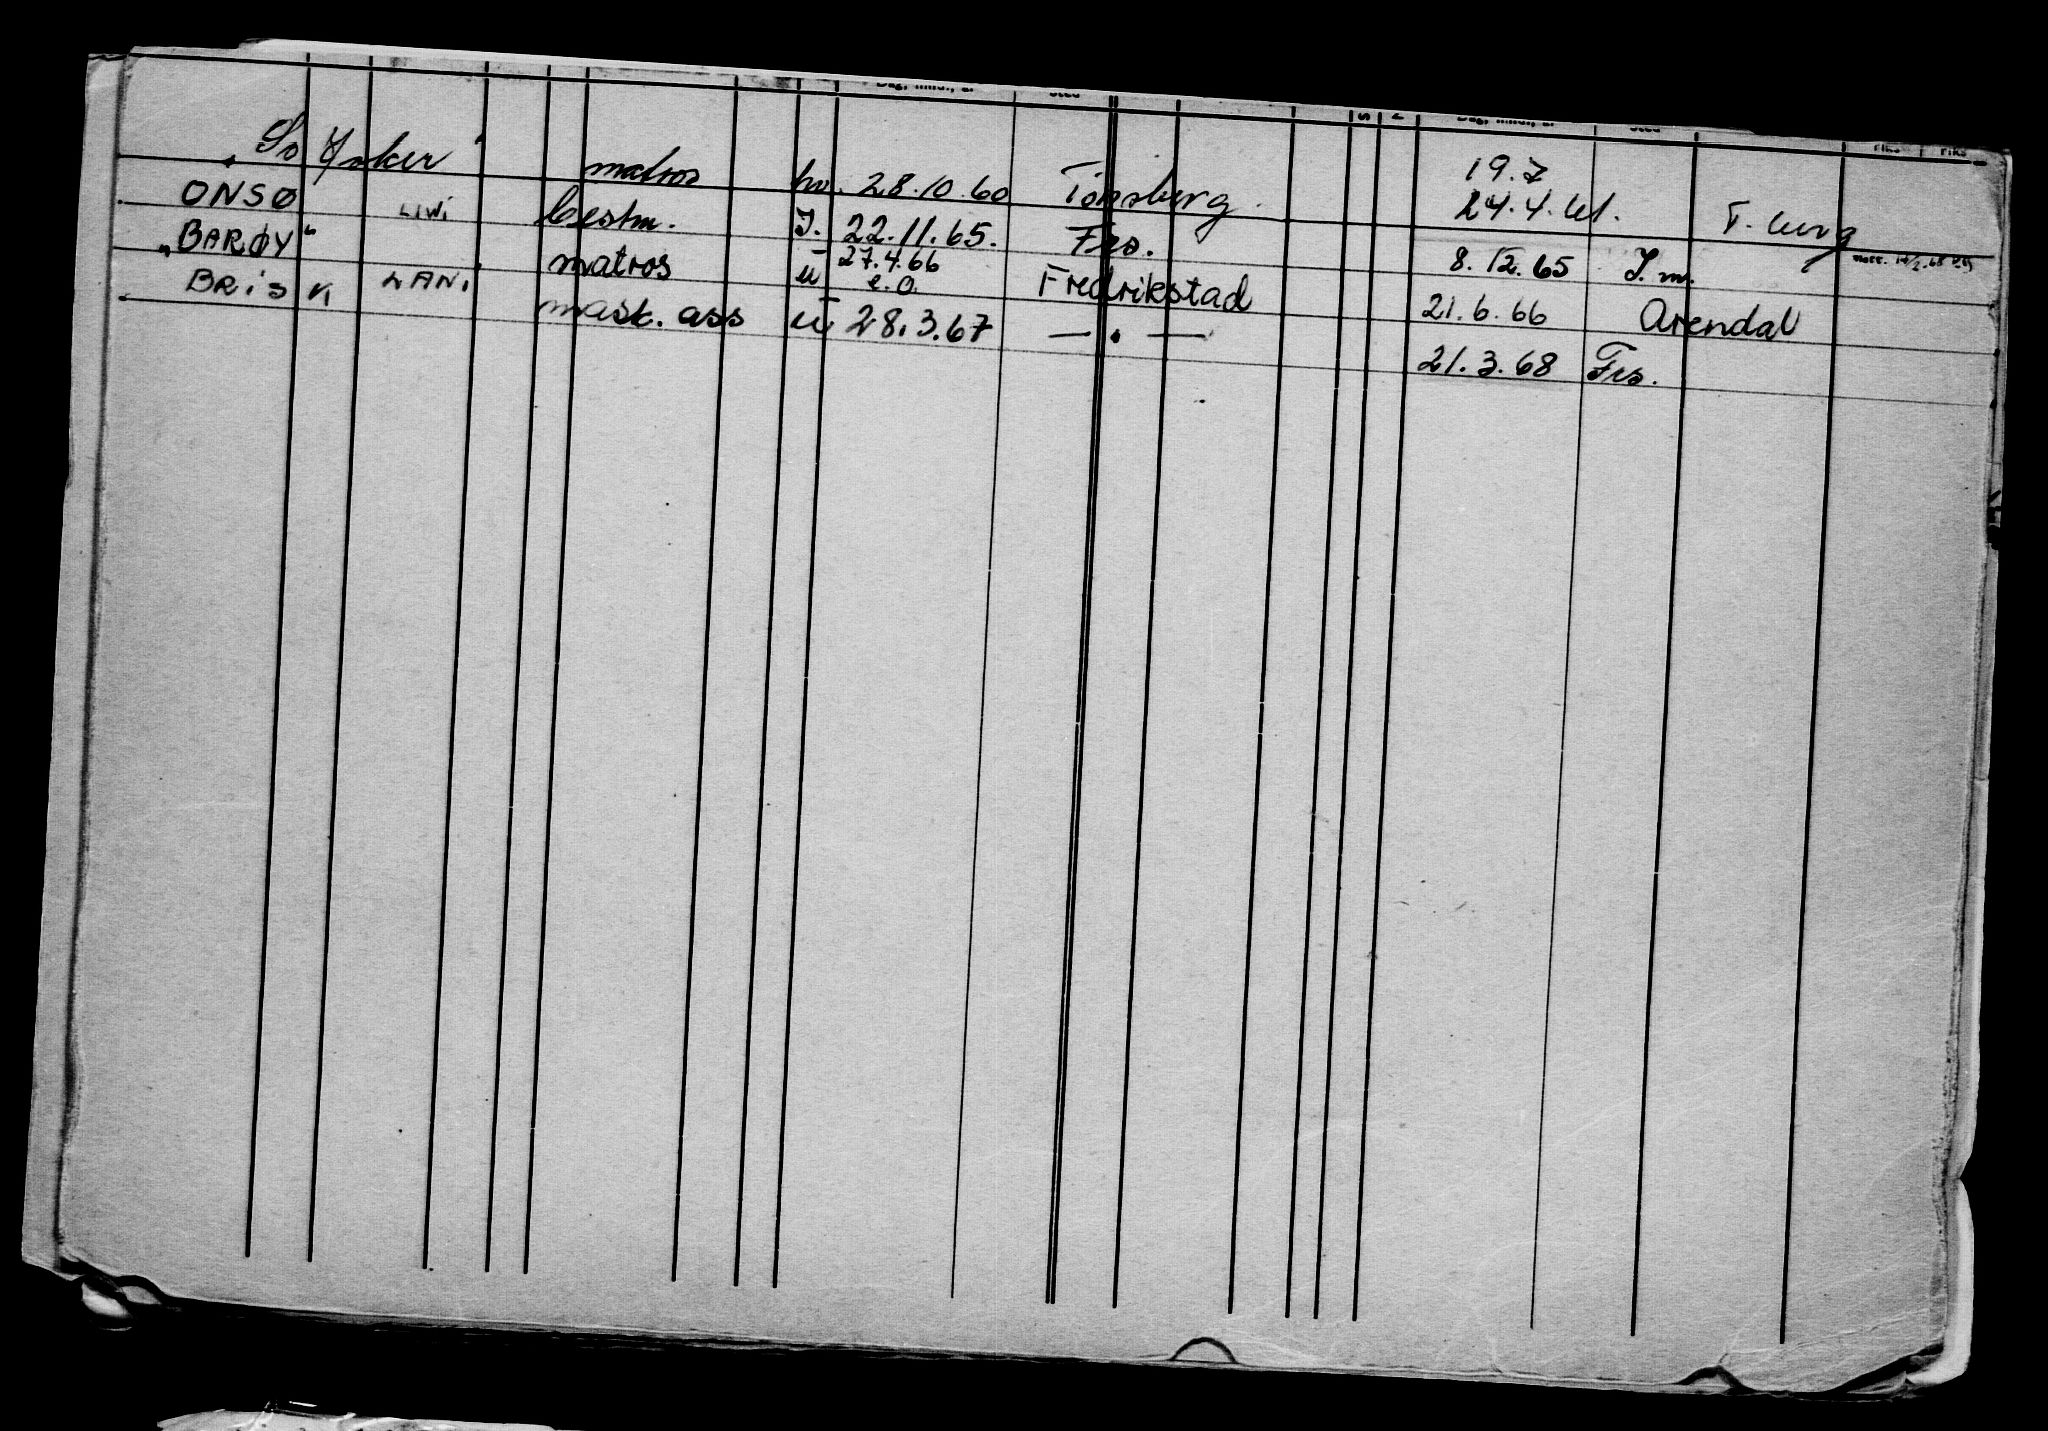 19.7
matros hv. 28.10.60 Tønsberg 24.4.61. T. berg
ONSØ LIWI bestm. J. 22.11.65. Frs. 8.12.65 J.m.
"BARØY" matros u 27.4.66 e.o. Fredrikstad 21.6.66 Arendal
BRISK LANI mask. ass u 28.3.67 — . — 21.3.68 Frs.